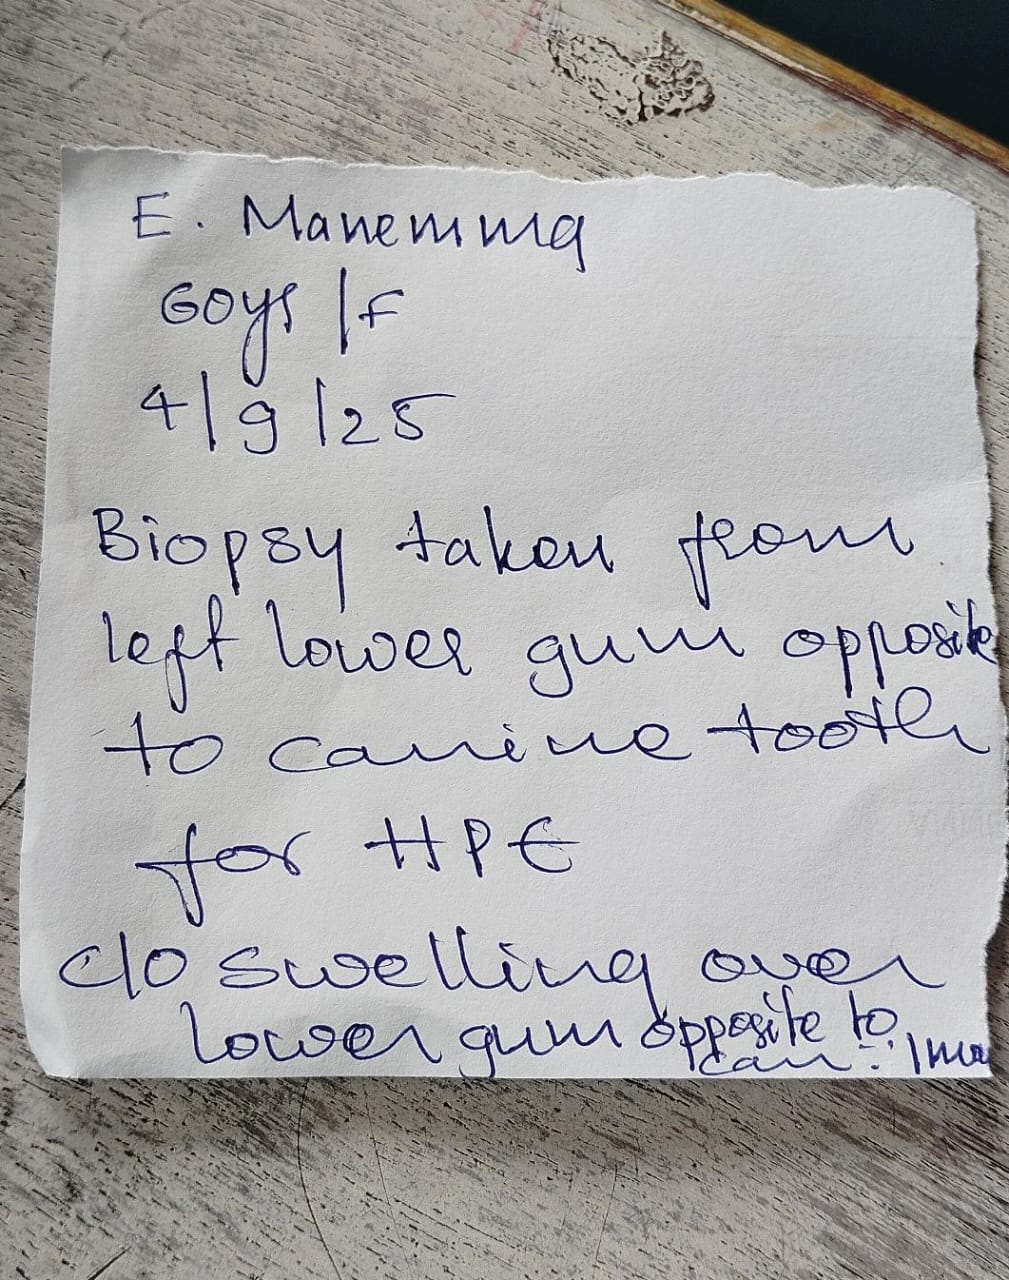 E. Manemma
60ys /F
4/9/25
Biopsy taken from
left lower gum opposite
to canine tooth
for HPE
c/o swelling over
lower gum opposite to